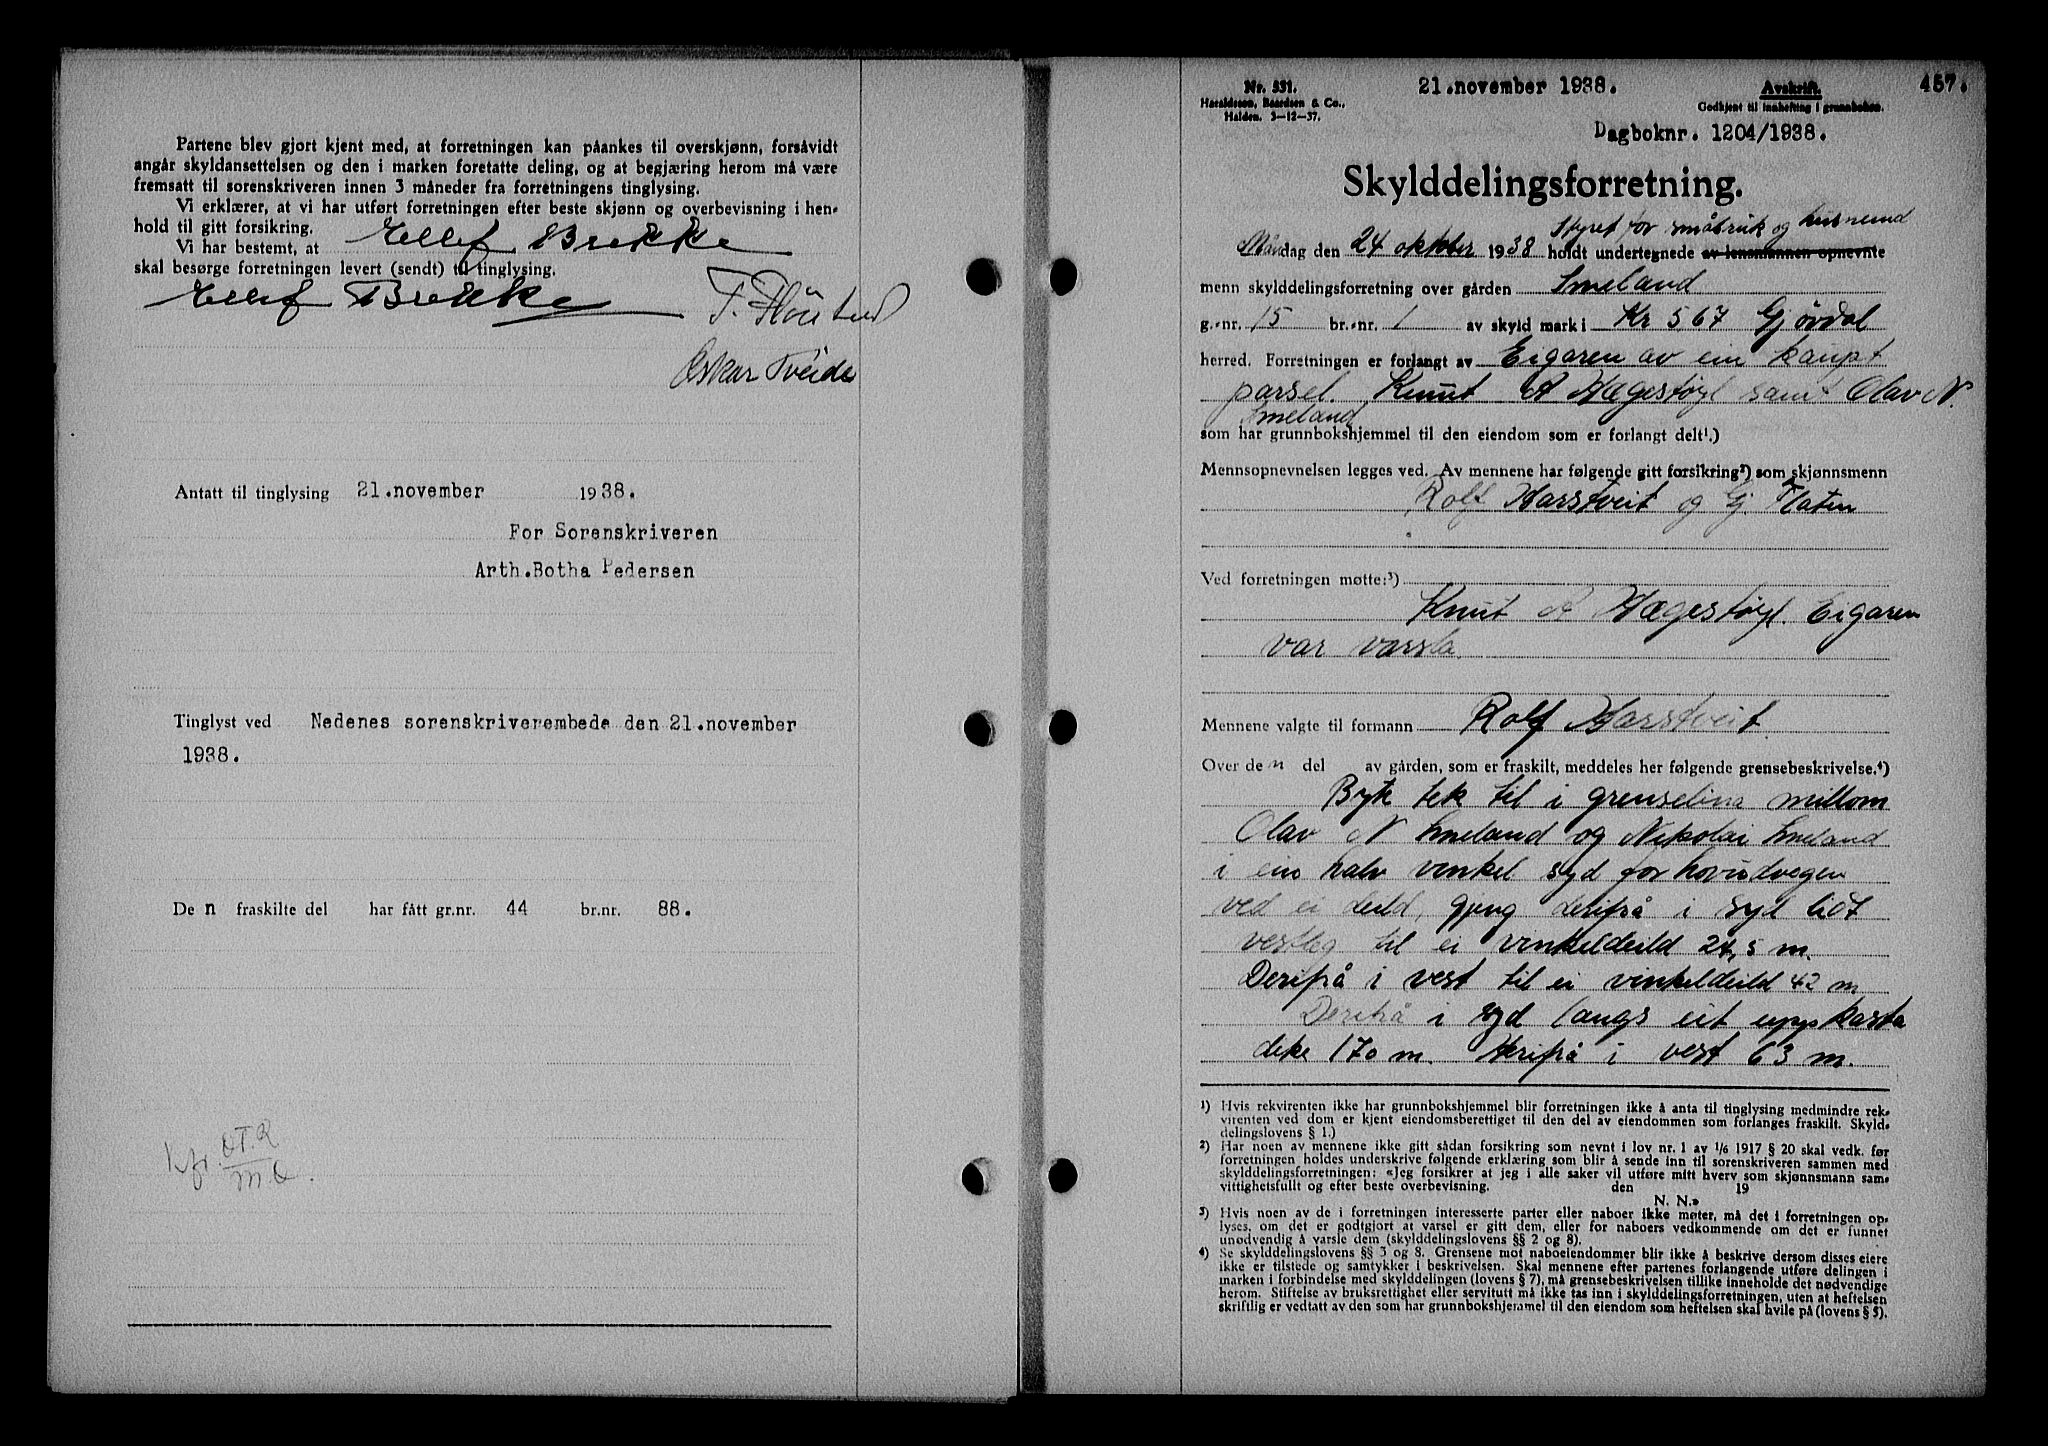 Partene blev gjort kjent med, at forretningen kan påankes til overskjønn, forsåvidt
angår skyldansettelsen og den i marken foretatte deling, og at begjæring herom må være
fremsatt til sorenskriveren innen 3 måneder fra forretningens tinglysing.
Vi erklærer, at vi har utført forretningen efter beste skjønn og overbevisning i hen-
hold til gitt forsikring.
Vi har bestemt, at Ellef Brekke
skal besørge forretningen levert (sendt) til tinglysing.
Ellef Brekke
Oskar Tveide
Antatt til tinglysing 21.november 1938.
For Sorenskriveren
Arth.Botha Pedersen
Tinglyst ved Nedenes sorenskriverembede den 21.november
1938.
De n fraskilte del har fått gr.nr. 44 br.nr. 88.
Nr. 531.
Haraldssen, Baardsen & Co.,
Halden. 3-12-37.
21.november 1938.
Avskrift.
Godkjent til innhefting i grunnboken.
457.
Dagboknr. 1204/1938.
Skylddelingsforretning.
Styret for småbruk og husnemd
Måndag den 24 oktober 1938 holdt undertegnede av lensmannen opnevnte
menn skylddelingsforretning over gården Smeland
g.-nr. 15 br.-nr. 1 av skyld mark i Kr 5 67 Gjøvdal
herred. Forretningen er forlangt av Eigaren av ein kaupt
parsel. Knut A Hægestøyl samt Olav N.
Smeland
som har grunnbokshjemmel til den eiendom som er forlangt delt¹.)
Mennsopnevnelsen legges ved. Av mennene har følgende gitt forsikring²) som skjønnsmenn
Rolf Harstveit og Gj. Flaten
Ved forretningen møtte:³)
Knut A Hægestøyl. Eigaren
var varsla.
Mennene valgte til formann Rolf Harstveit.
Over de n del av gården, som er fraskilt, meddeles her følgende grensebeskrivelse.⁴)
Byk tek til i grenselina millom
Olav N Smeland og Nikolai Smeland
i ein halv vinkel syd for hovudvegen
ved ei deild, gjeng derifrå i syd lidt
vestleg til ei vinkeldeild 24,5 m.
Derifrå i vest til ei vinkeldeild 42 m
Derifrå i syd langs eit uppkasta
deke 170 m. Herifrå i vest 63 m.
¹) Hvis rekvirenten ikke har grunnbokshjemmel blir forretningen ikke å anta til tinglysing medmindre rek-
virenten ved dom er kjent eiendomsberettiget til den del av eiendommen som forlanges fraskilt. Skyld-
delingslovens § 1.)
²) Har noen av mennene ikke gitt sådan forsikring som nevnt i lov nr. 1 av 1/6 1917 § 20 skal vedk. før
forretningen holdes underskrive følgende erklæring som blir å sende inn til sorenskriveren sammen med
skylddelingsforretningen: «Jeg forsikrer at jeg i alle saker vil utføre mitt hverv som skjønnsmann sam-
vittighetsfullt og efter beste overbevisning. den 19
N. N.»
³) Hvis noen av de i forretningen interesserte parter eller naboer ikke møter, må det i forretningen op-
lyses, om det er godtgjort at varsel er gitt dem, eller for naboers vedkommende om det er funnet
unødvendig å varsle dem (skylddelingslovens §§ 2 og 8).
⁴) Se skylddelingslovens §§ 3 og 8. Grensene mot naboeiendommer blir ikke å beskrive dersom disses eiere
ikke er tilstede og samtykker i beskrivelsen. Skal mennene efter partenes forlangende utføre delingen i
marken i forbindelse med skylddelingen (lovens § 7), må grensebeskrivelsen tillike inneholde det nødvendige
herom. Stiftelse av bruksrettighet eller servitutt må ikke tas inn i skylddelingsforretningen, uten at heftelsen
skriftlig er vedtatt av den som har grunnbokshjemmel til den eiendom som heftelsen skal hvile på (lovens § 5).